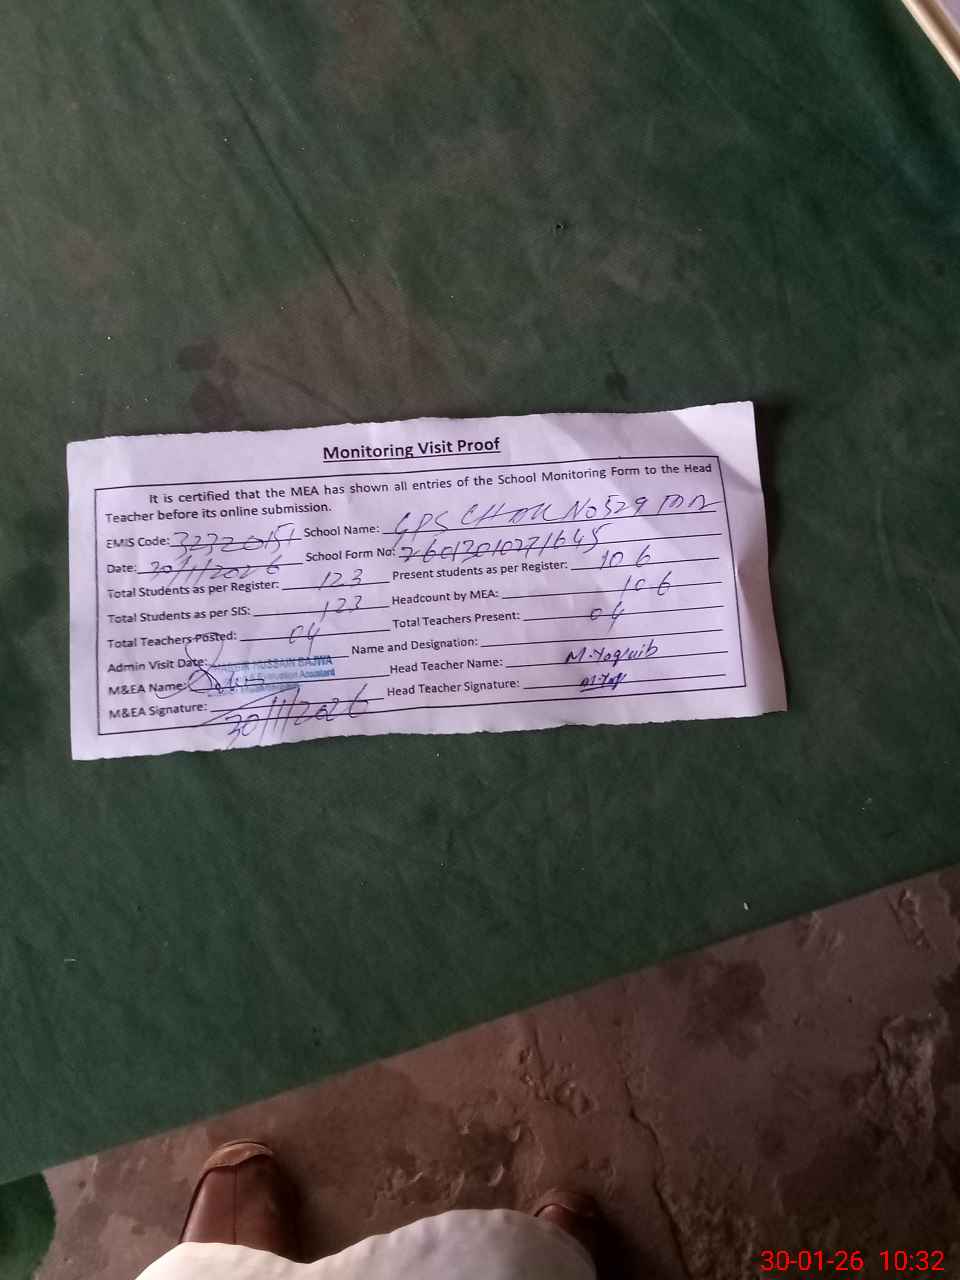 Monitoring Visit Proof
It is certified that the MEA has shown all entries of the School Monitoring Form to the Head
Teacher before its online submission.
EMIS Code: 32320151 School Name: GPS CHAK No 529 TDA
Date: 30/1/2026 School Form No: 26013010271645
Total Students as per Register: 123 Present students as per Register: 106
Total Students as per SIS: 123 Headcount by MEA: 106
Total Teachers Posted: 04 Total Teachers Present: 04
Admin Visit Date: Name and Designation:
HUSSAIN BAJWA
M&EA Name: Head Teacher Name: M.Yaqwib
M&EA Signature: Head Teacher Signature:
30/1/2026
30-01-26 10:32